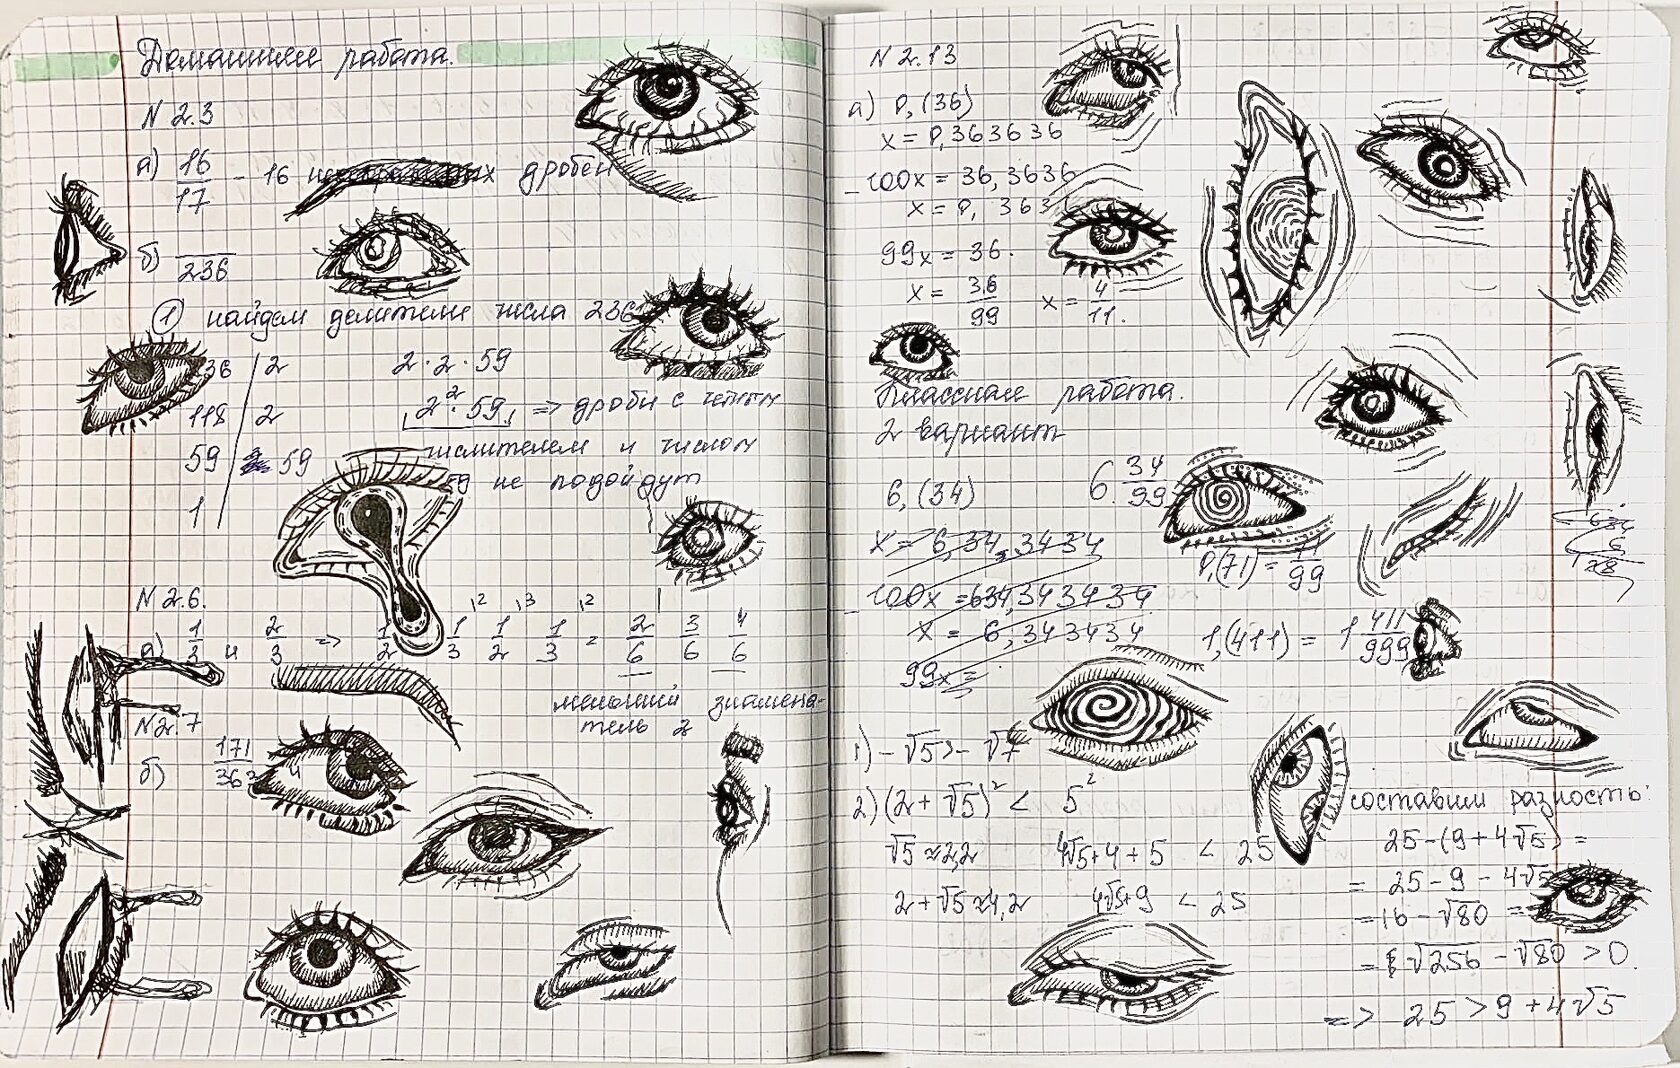 Домашняя работа.
N 2.3
а) 16/17 - 16 дробей
б) /236
① найдем делители числа 236
36 | 2
118 | 2
59 | 59
1
2 · 2 · 59
2² · 59 => дроби с чётным
числителем и числом
59 не подойдут
N 2.6.
а) 1/2 и 2/3 => 1/2 1/3 1/2 1/3 = 2/6 3/6 4/6
меньший знамена-
тель 2
N 2.7
б) 171/363
N 2.13
а) 0,(36)
x = 0,363636
100x = 36,3636
x = 0,3636
99x = 36.
x = 36/99 x = 4/11.
Классная работа.
2 вариант
6,(34) 6 34/99
x = 6,34,3434
100x = 634,343434
x = 6,343434
99x =
0,(71) = 71/99
1,(411) = 1 411/999
1) -√5 > -√7
2) (2 + √5)² < 5²
√5 ≈ 2,2 4√5 + 4 + 5 < 25
2 + √5 ≈ 4,2 4√5 + 9 < 25
составим разность:
25 - (9 + 4√5) =
= 25 - 9 - 4√5
= 16 - √80 =
= √256 - √80 > 0.
=> 25 > 9 + 4√5